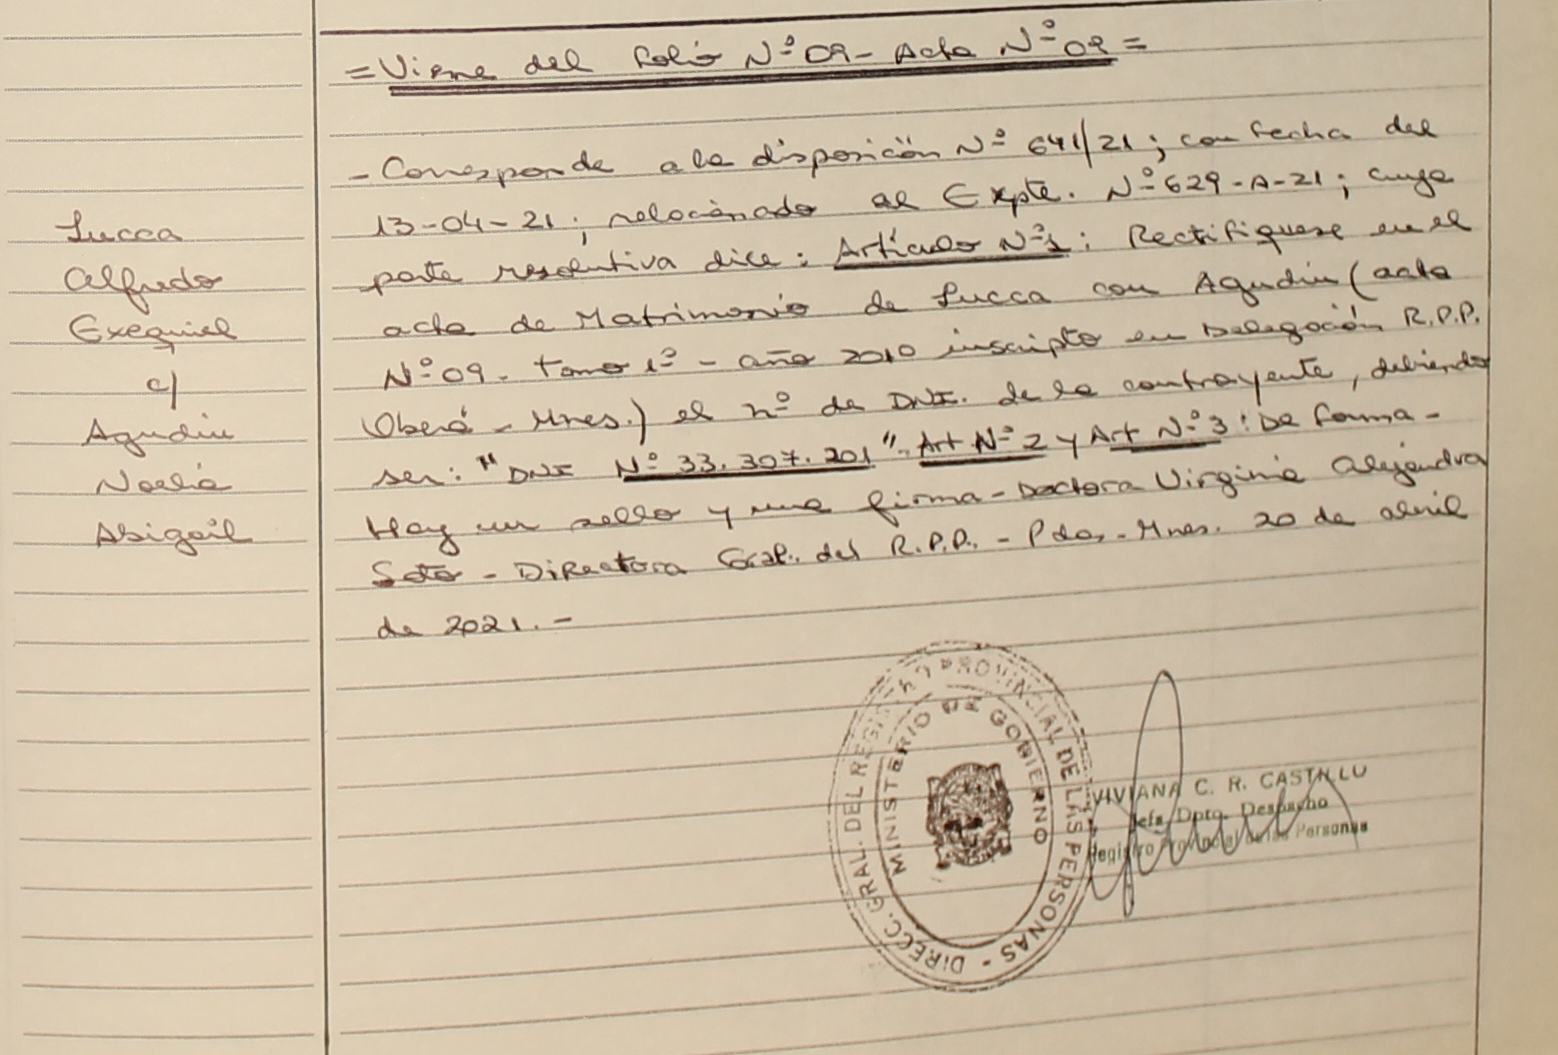 = Viene del folio Nº 09 - Acta Nº 09 =
- Corresponde a la disposición Nº 641/21; con fecha del
13-04-21; relacionado al Expte. Nº 629-A-21; cuya
parte resolutiva dice: Artículo Nº1: Rectifiquese en el
acta de Matrimonio de Lucca con Agudiu (acta
Nº 09. Tomo 1º - año 2010 inscripto en Delegación R.P.P.
Oberá - Mnes.) el nº de DNI. de la contrayente, debiendo
ser: "DNI Nº 33.307.201". Art Nº 2 y Art Nº 3: De forma-
Hay un sello y una firma - Doctora Virginia Alejandra
Soto - Directora Gral. del R.P.P. - Pdas. - Mnes. 20 de abril
de 2021. -
Lucca
Alfredo
Exequiel
c/
Agudiu
Noelia
Abigail
DIRECC. GRAL. DEL REGISTRO PROVINCIAL DE LAS PERSONAS -
MINISTERIO DE GOBIERNO
VIVIANA C. R. CASTILLO
Jefa Dpto. Despacho
Registro Provincial de las Personas